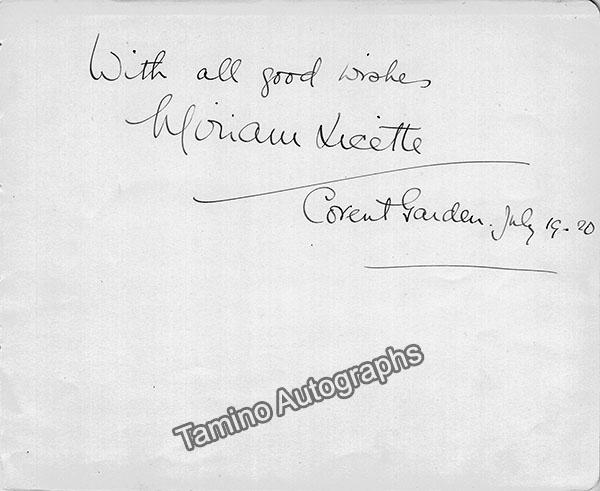 With all good wishes
Miriam Licette
Covent Garden. July 19-20
Tamino Autographs